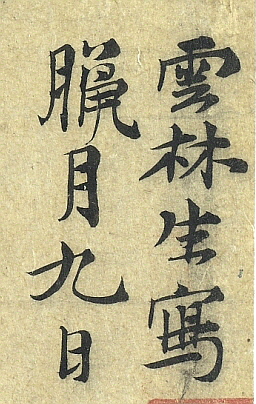 雲林生寫
臘月九日